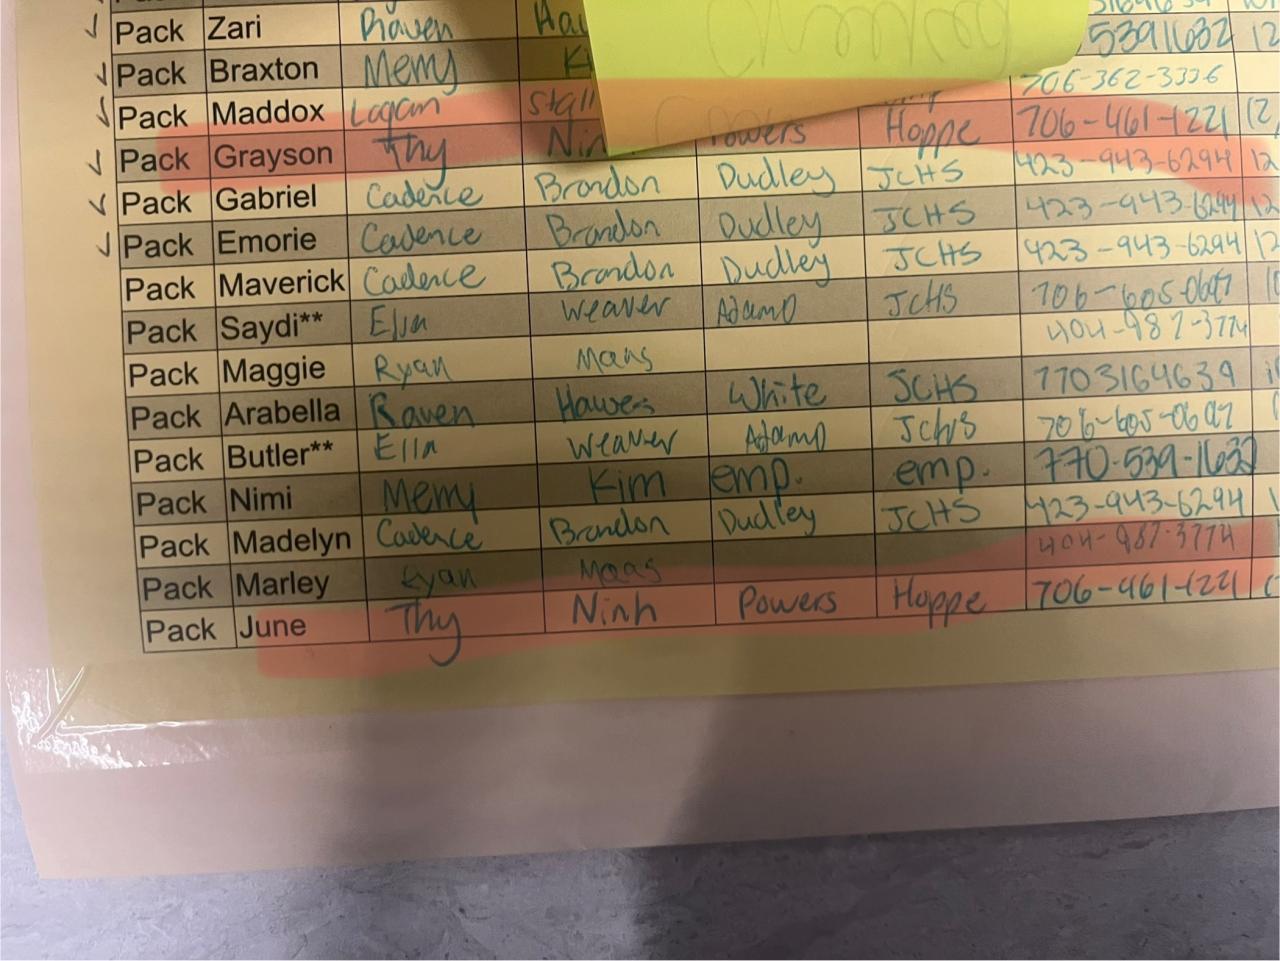 Pack Zari Raven
Pack Braxton Merry 5391632 12
Pack Maddox Logan Stall 706-362-3336
Pack Grayson Thy Nin Powers Hoppe 706-461-1221 12
Pack Gabriel Cadence Brandon Dudley JCHS 423-943-6294 12
Pack Emorie Cadence Brandon Dudley JCHS 423-943-6294 12
Pack Maverick Cadence Brandon Dudley JCHS 423-943-6294 12
Pack Saydi** Ella Weaver Adamo JCHS 706-605-0697
Pack Maggie Ryan Maas 404-987-3774
Pack Arabella Raven Hawes White JCHS 7703164639
Pack Butler** Ella Weaver Adamo JCHS 706-605-0697
Pack Nimi Merry Kim emp. emp. 770-539-1632
Pack Madelyn Cadence Brandon Dudley JCHS 423-943-6294
Pack Marley Ryan Maas 404-987-3774
Pack June Thy Ninh Powers Hoppe 706-461-1221